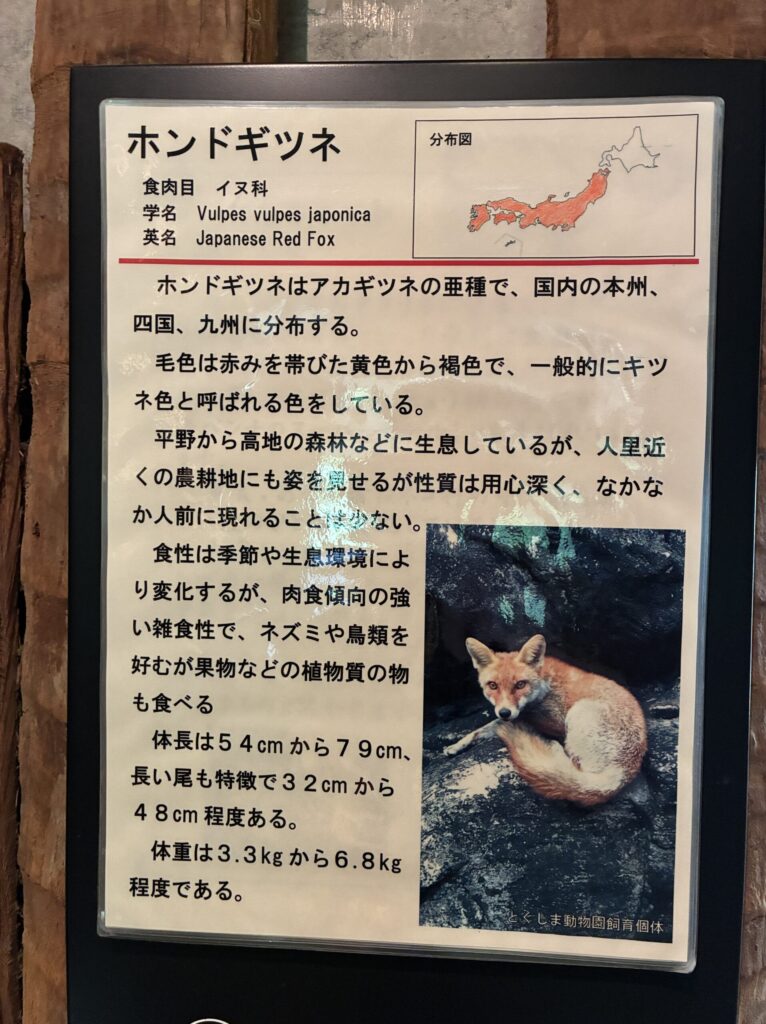 ホンドギツネ
食肉目　イヌ科
学名　Vulpes vulpes japonica
英名　Japanese Red Fox
分布図
ホンドギツネはアカギツネの亜種で、国内の本州、
四国、九州に分布する。
毛色は赤みを帯びた黄色から褐色で、一般的にキツ
ネ色と呼ばれる色をしている。
平野から高地の森林などに生息しているが、人里近
くの農耕地にも姿を見せるが性質は用心深く、なかな
か人前に現れることは少ない。
食性は季節や生息環境によ
り変化するが、肉食傾向の強
い雑食性で、ネズミや鳥類を
好むが果物などの植物質の物
も食べる
体長は５４cmから７９cm、
長い尾も特徴で３２cmから
４８cm程度ある。
体重は3.3kgから6.8kg
程度である。
とくしま動物園飼育個体